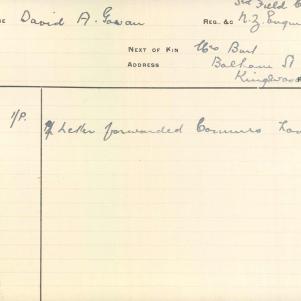 3rd Field C
ME David A. Gowan REG. &C N.Z. Engin
NEXT OF KIN Mrs Bart
ADDRESS Balham St
Kingswood
1/P. Letter forwarded Commrs Lon